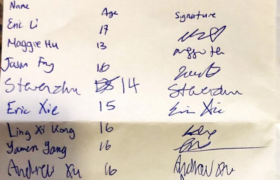 Name Age Signature
Eric Li 17
Maggie Hu 13 Maggie Hu
Jason Fng 16
Steven zhu 14 Steven zhu
Eric Xie 15 Eric Xie
Ling Xi Kong 16 Kong
Yamen Yang 16
Andrew xu 16 Andrew xu